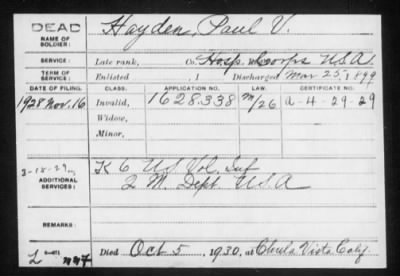 DEAD Hayden, Paul V.
NAME OF SOLDIER:
SERVICE: Late rank, Co. Hosp. Corps U.S.A.
TERM OF SERVICE: Enlisted , 1 Discharged Mar 25, 1899
DATE OF FILING. CLASS. APPLICATION NO. LAW. CERTIFICATE NO.
1928 Nov. 16 Invalid, 1628.338 M/26 A-4-29-29
Widow,
Minor,
3-18-29
ADDITIONAL SERVICES: K 6 US Vol. Inf
Q M. Dept. U.S.A
REMARKS:
Died Oct 5, 1930, at Chula Vista Calif.